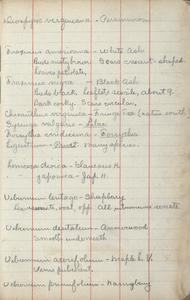 Diospyros virginiana - Persimmon
Fraxinus americana - White Ash
Buds rusty brown. Scars crescent-shaped.
leaves petiolate,
Fraxinus nigra - Black Ash
Buds black. leaflets sessile, about 9.
Bark corky. Scars circular.
Chionanthus virginica - Fringe tree (native south)
Syringa vulgaris - Lilac.
Forsythia viridissima - Forsythia
Ligustrum - Privet. Many species.
Lonicera dioica - Glaucous H.
" japonica - Jap. H.
Viburnum lentago - Sheepberry
oval, opp. acuminate serrate
Viburnum dentatum - Arrowwood
Smooth underneath
Viburnum acerifolium - Maple l. V.
Veins pubescent.
Viburnum prunifolium - Nannyberry